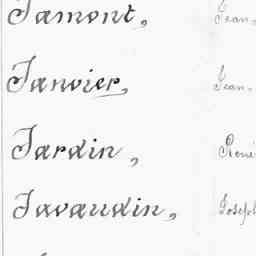 Jamont, Jean
Janvier, Jean
Jardin, René
Javaudin, Joseph